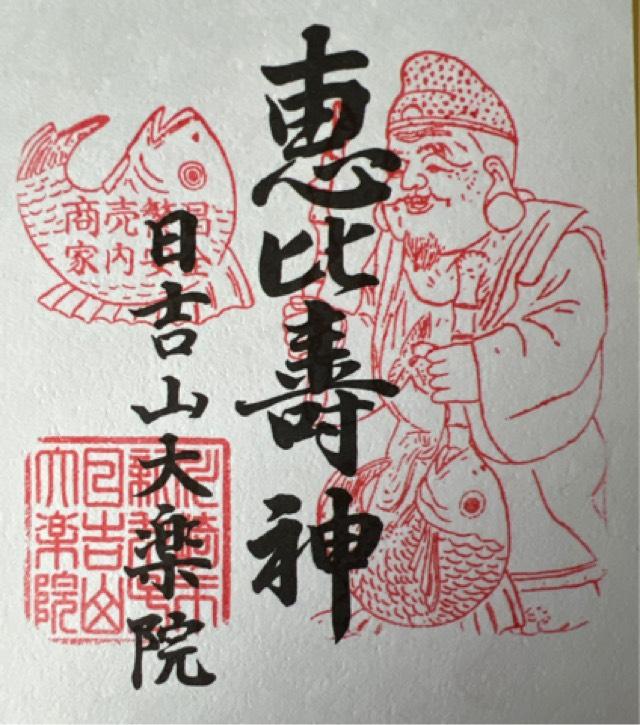 恵比壽神
日吉山大楽院
商売繁昌
家内安全
川崎市
日吉山
大楽院